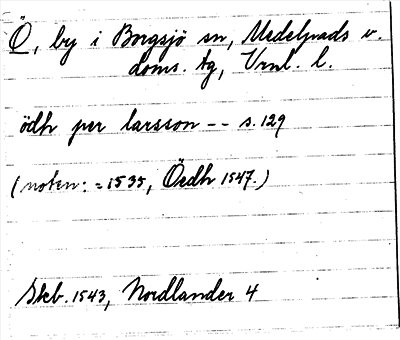 Ö, by i Borgsjö sn, Medelpads v.
doms. tg, Vrnl. l.
ödh per larsson -- s. 129
(noten: = 1535, Öedh 1547.)
Skb. 1543, Nordlander 4